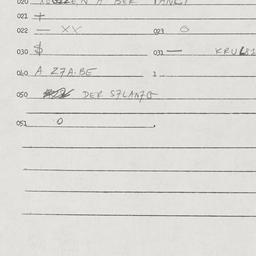 020
021 +
022 — XX 023 0
030 $ 031 — KRUL
040 A Z7A·BE
050 DER S7LANZO
051 0